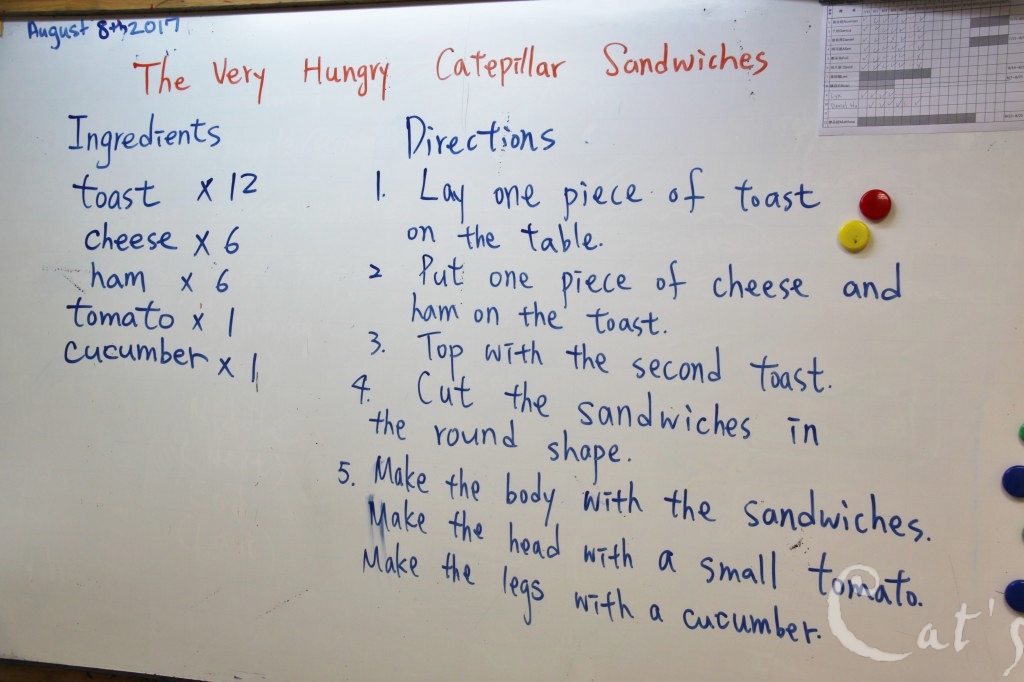 August 8th 2017
The Very Hungry Catepillar Sandwiches
Ingredients
toast x 12
cheese x 6
ham x 6
tomato x 1
cucumber x 1
Directions
1. Lay one piece of toast
on the table.
2 Put one piece of cheese and
ham on the toast.
3. Top with the second toast.
4. Cut the sandwiches in
the round shape.
5. Make the body with the sandwiches.
Make the head with a small tomato.
Make the legs with a cucumber.
Cat's